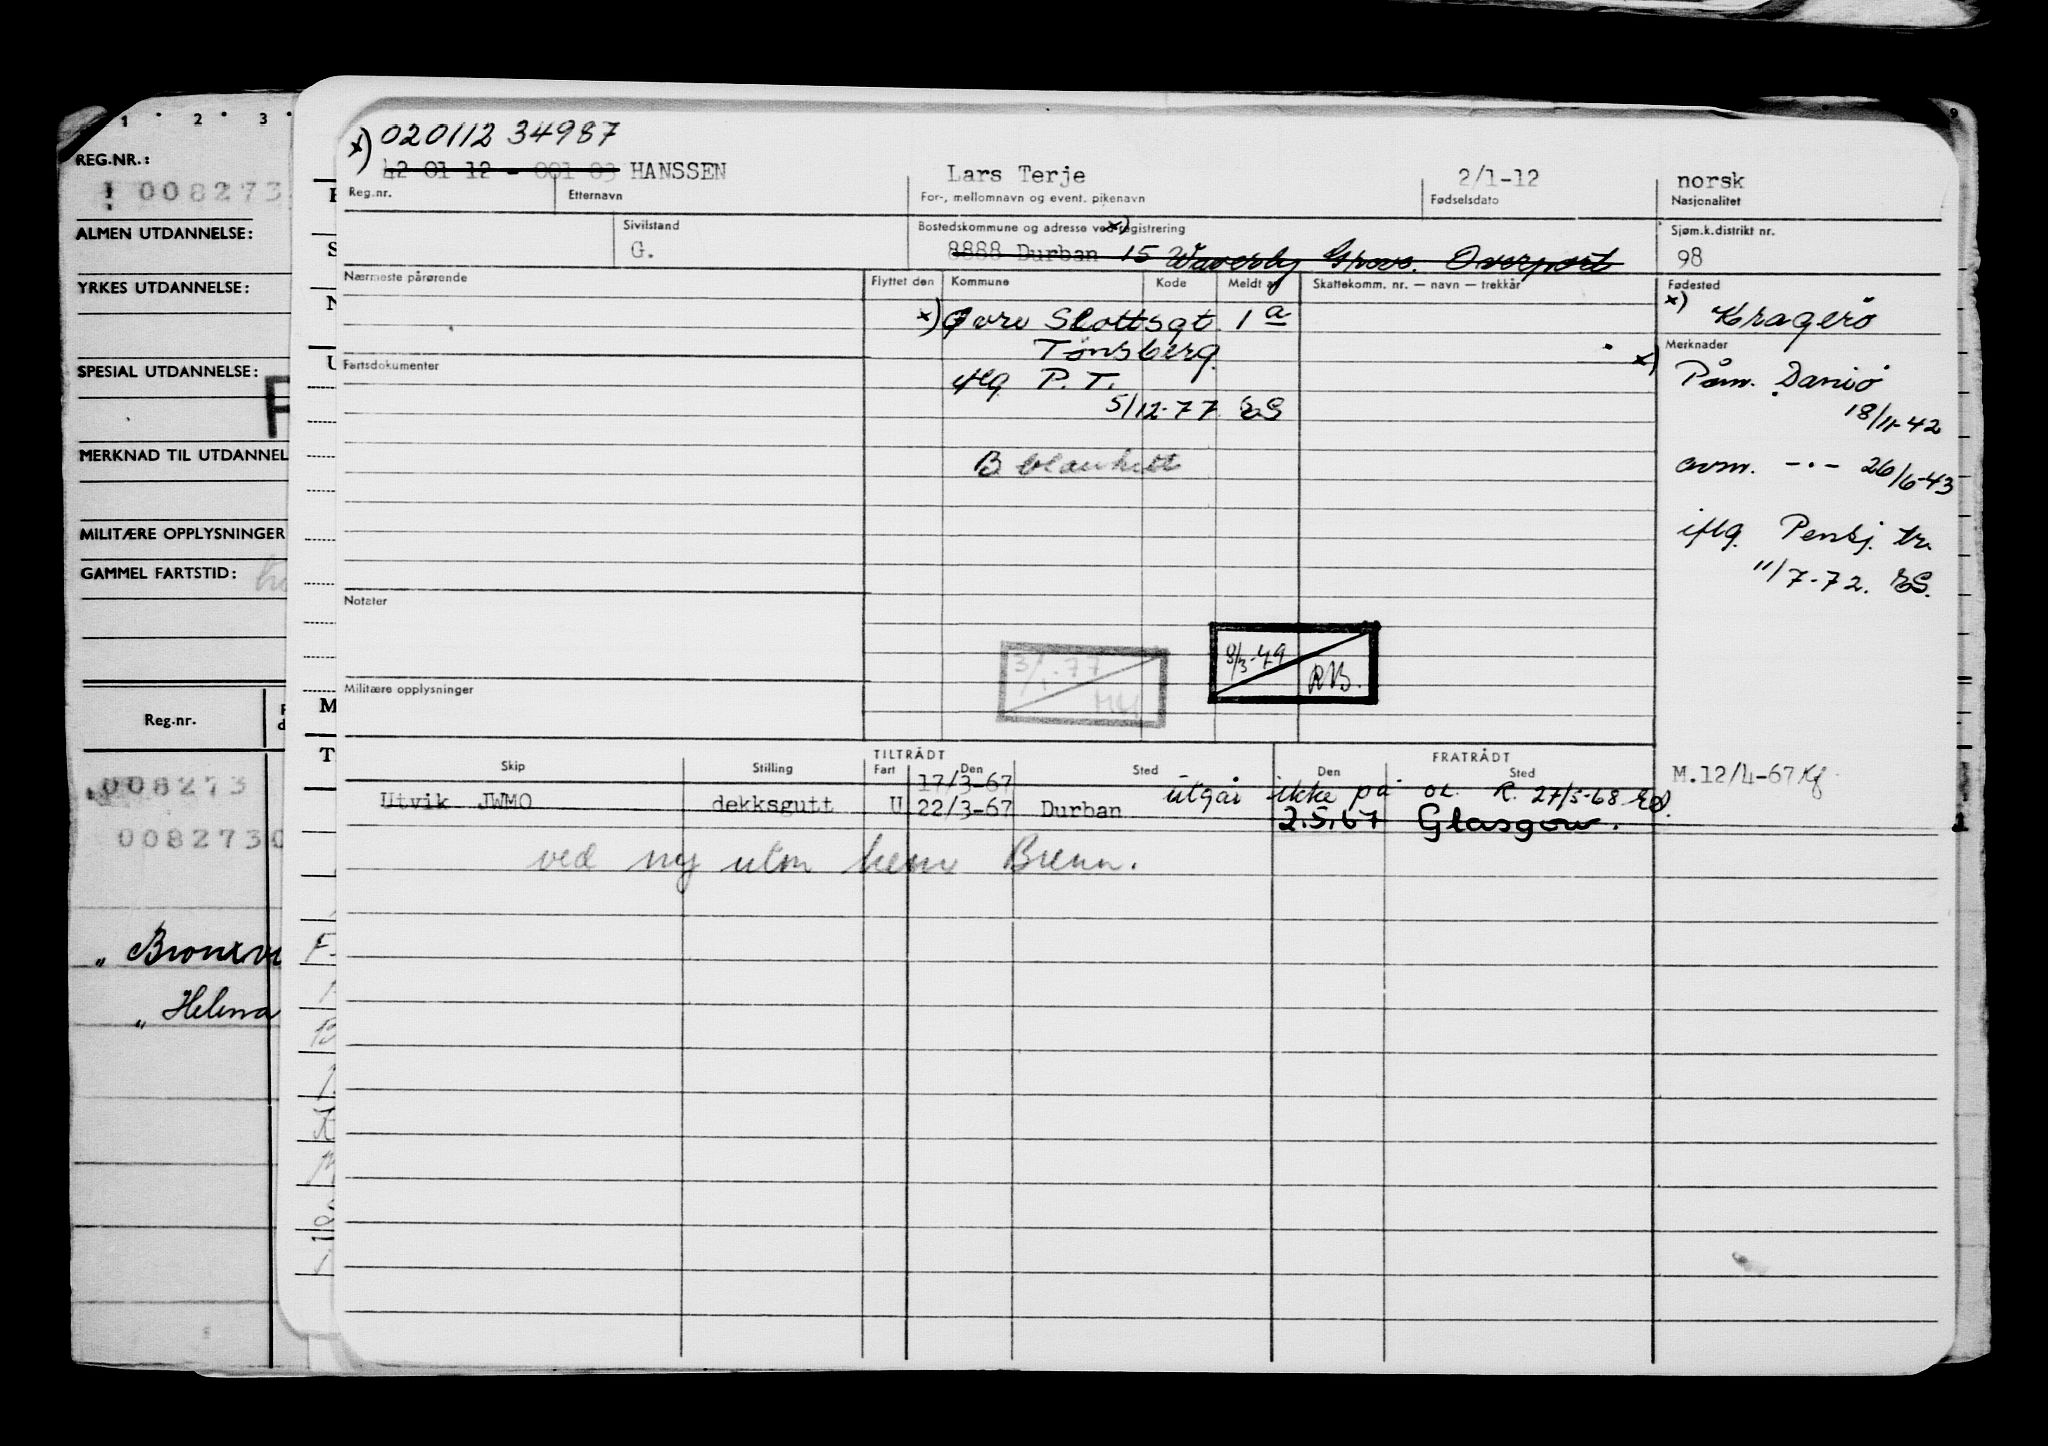 1 2 3 9
REG.NR.:
! 008273
ALMEN UTDANNELSE:
YRKES UTDANNELSE:
SPESIAL UTDANNELSE:
MERKNAD TIL UTDANNEL
MILITÆRE OPPLYSNINGER
GAMMEL FARTSTID:
Reg.nr.
008273
0082730
Helena
x) 020112 34987
42 01 12 - 001 03 HANSSEN Lars Terje 2/1-12 norsk
Reg.nr. Etternavn For-, mellomnavn og event. pikenavn Fødselsdato Nasjonalitet
Sivilstand Bostedskommune og adresse ved registrering x) Sjøm.k.distrikt nr.
G. 8888 Durban 15 Waverly Grove. Overport 98
Nærmeste pårørende Flyttet den Kommune Kode Meldt av Skattekomm. nr. — navn — trekkår Fødested
x) Øvre Slottsgt. 1 a x) Kragerö
Tønsberg. Merknader
Fartsdokumenter iflg P. T. x) Påm. Darnö
5/12-77 ES 18/11-42
B blankett avm. -·- 26/6-43
iflg. Pensj. tr.
11/7-72. ES.
Notater
3/1-77 8/3-49 RB.
Militære opplysninger
TILTRÅDT FRATRÅDT
Skip Stilling Fart Den Sted Den Sted M.12/4-67 Kf
17/3-67 utgår ikke på OL. R. 27/5-68 ES.
Utvik JWMO dekksgutt U 22/3-67 Durban 2.5.67 Glasgow.
ved ny utm Brenn.